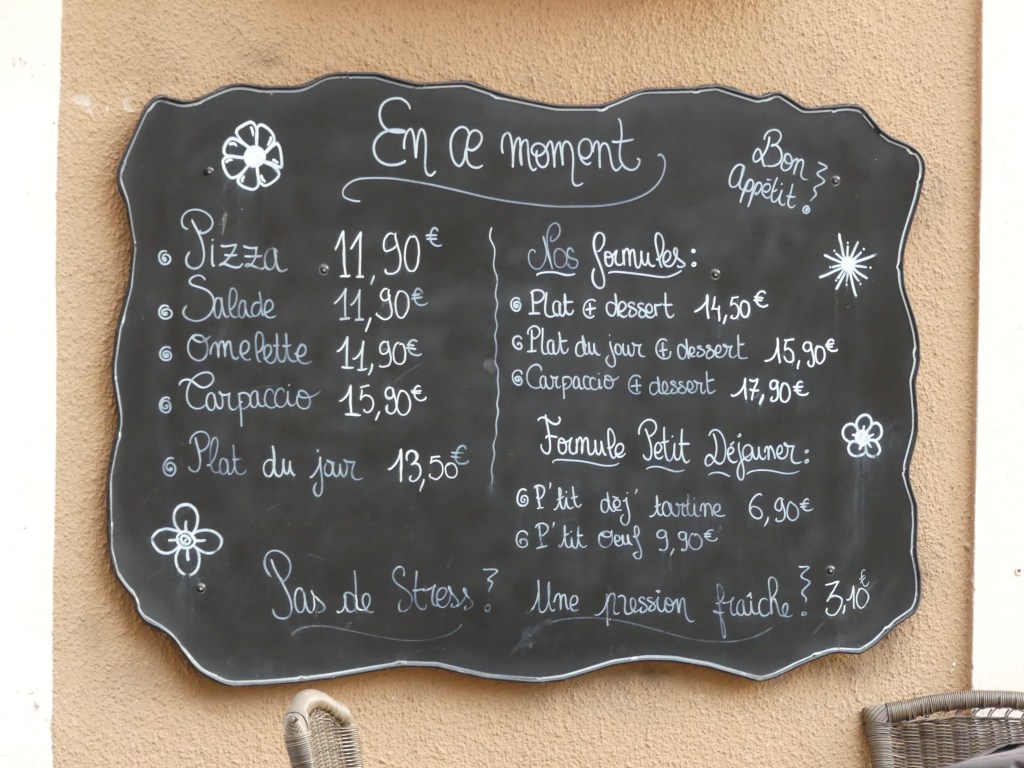 En ce moment
Bon
Appétit!
Pizza 11,90€
Salade 11,90€
Omelette 11,90€
Carpaccio 15,90€
Plat du jour 13,50€
Nos formules:
Plat & dessert 14,50€
Plat du jour & dessert 15,90€
Carpaccio & dessert 17,90€
Formule Petit Déjeuner:
P'tit déj' tartine 6,90€
P'tit oeuf 9,90€
Pas de Stress? Une pression fraîche? 3,10€